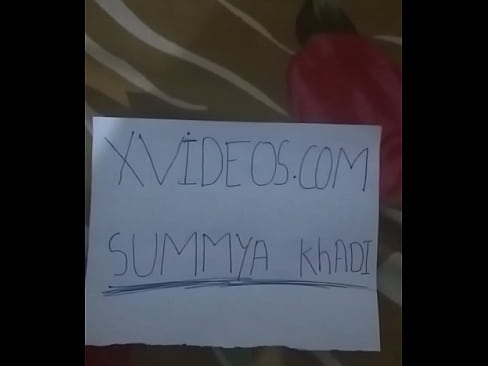 XVİDEOS.COM
SUMMYA KhADI